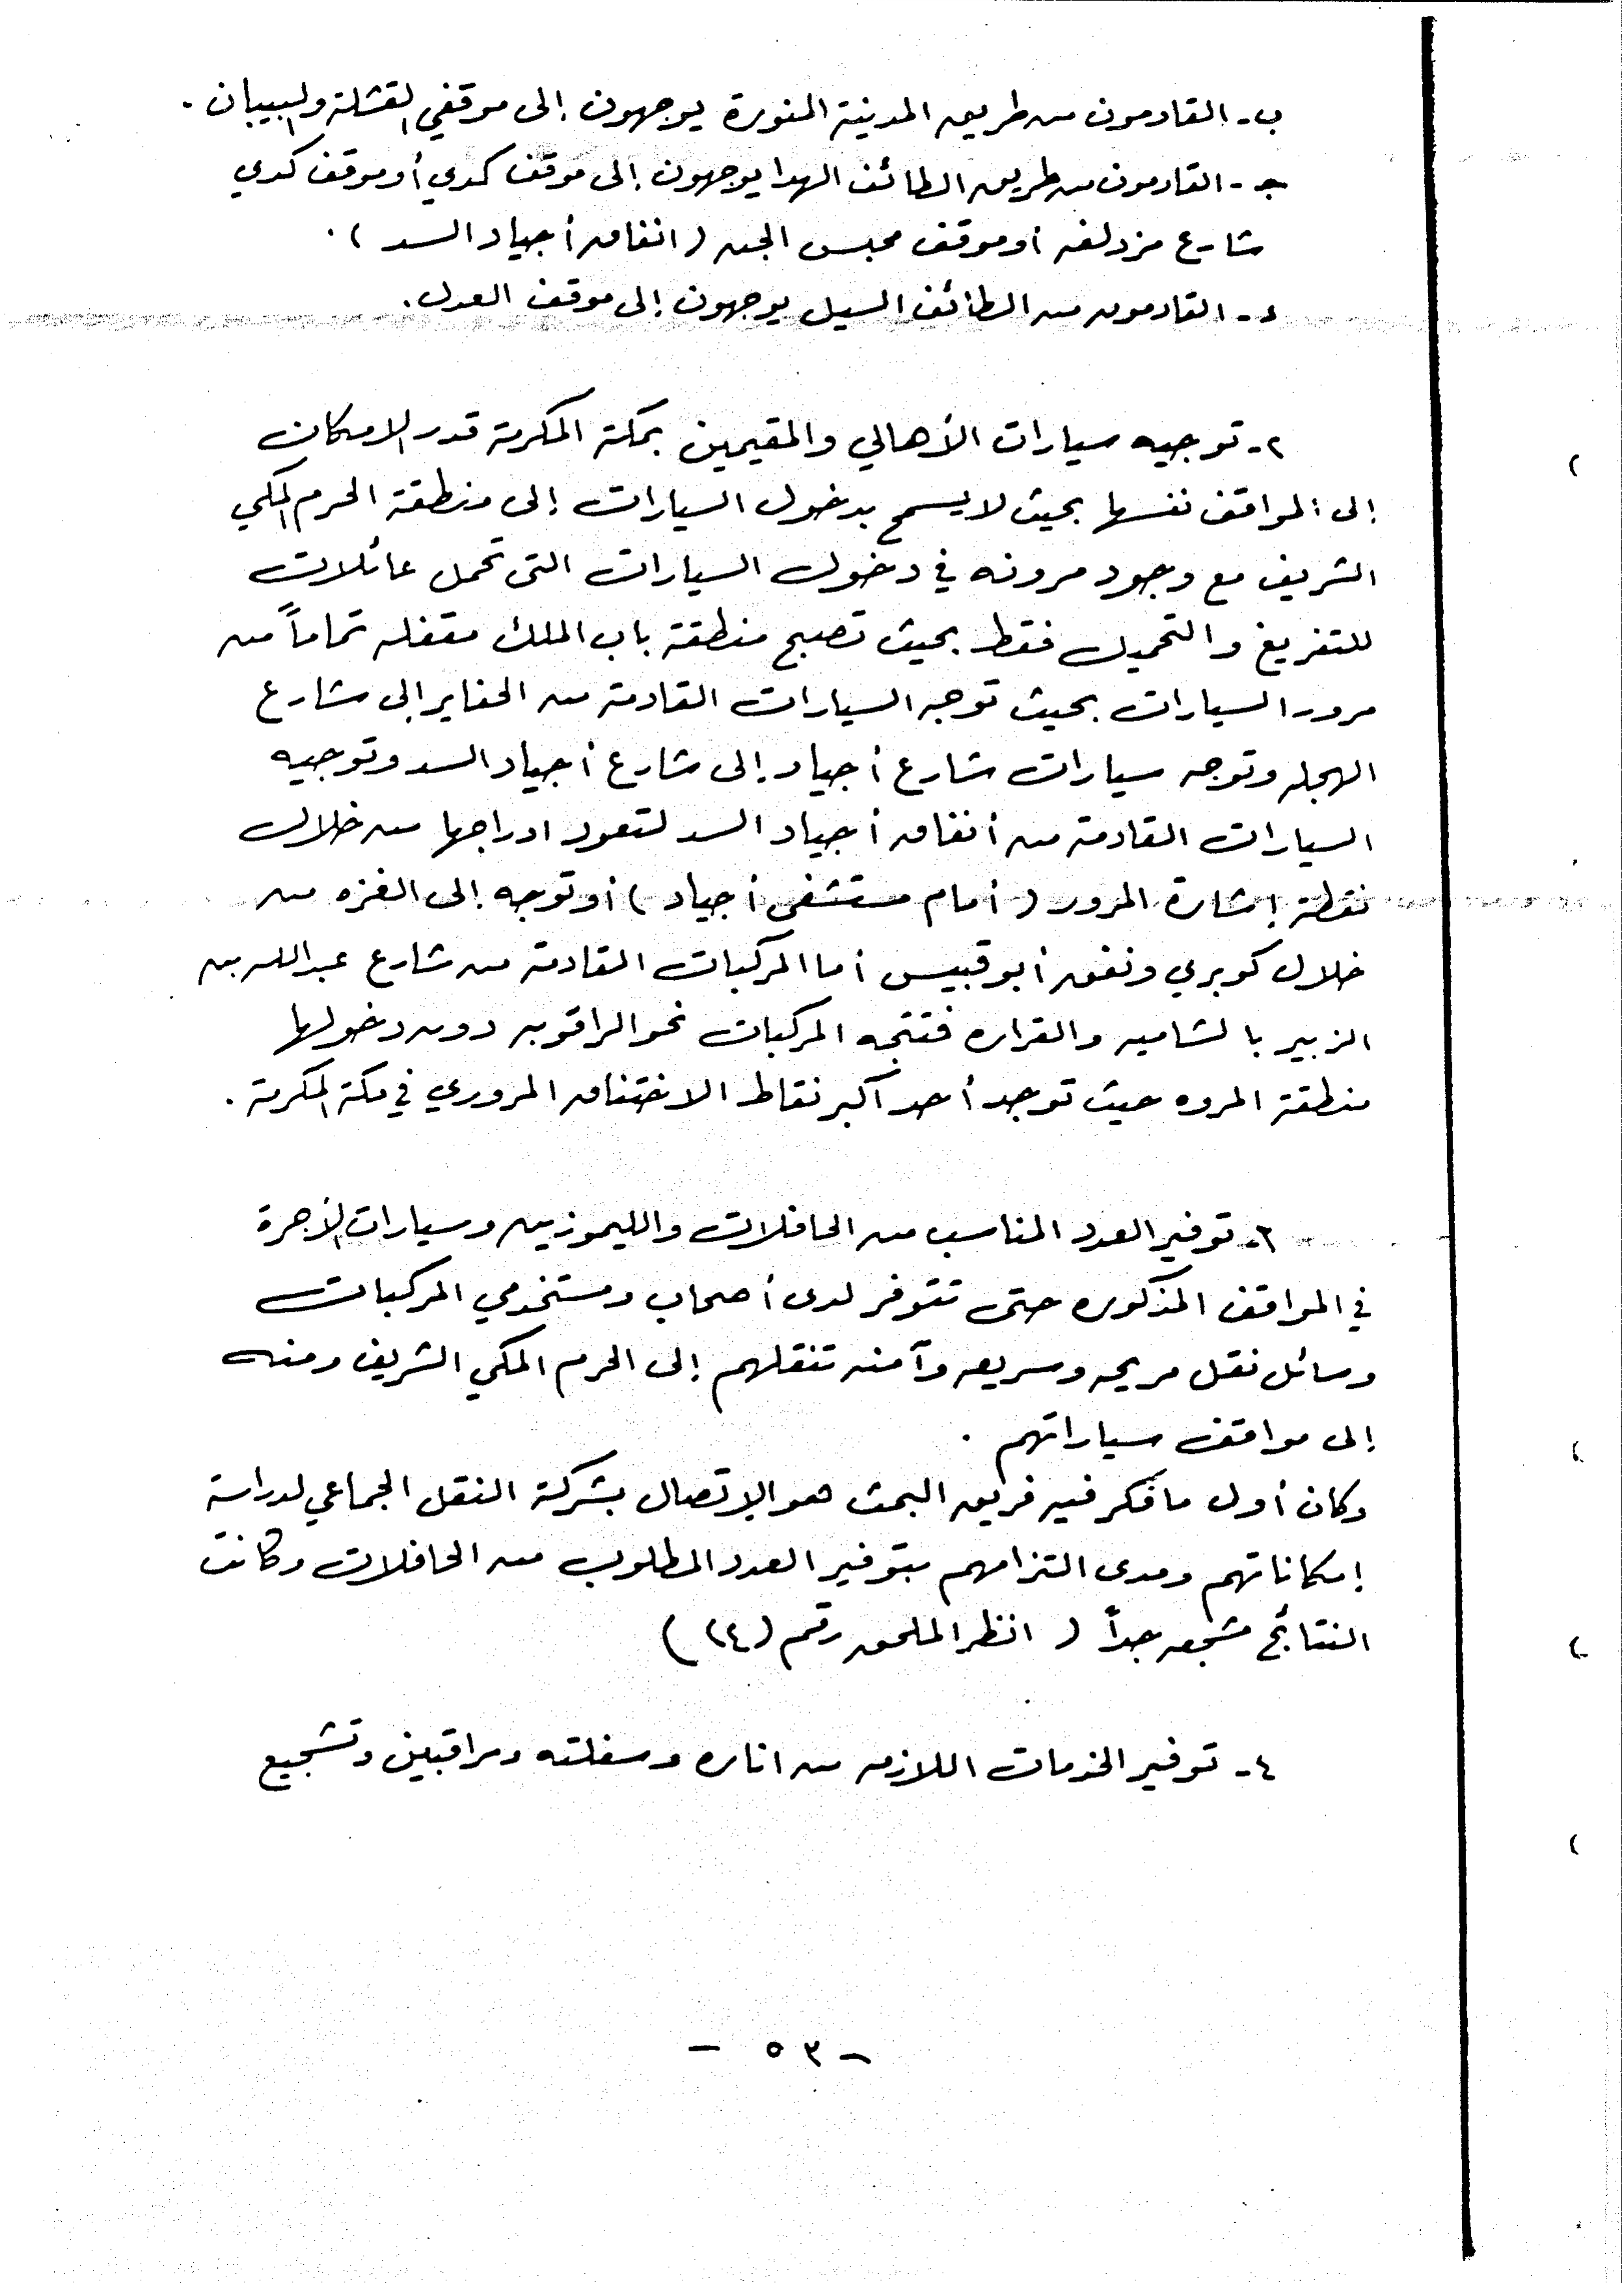 ب- القادمون من طريق المدينة المنورة يوجهون إلى موقفي القشلة والبيبان .
جـ - القادمون من طريق الطائف الهدا يوجهون إلى موقف كدي أو موقف كدي
شارع مزدلفه أو موقف محبس الجن ( انفاق أجياد السد ) .
د - القادمون من الطائف السيل يوجهون إلى موقف العدل .
٢- توجيه سيارات الأهالي والمقيمين بمكة المكرمة قدر الامكان
إلى المواقف نفسها بحيث لا يسمح بدخول السيارات إلى منطقة الحرم المكي
الشريف مع وجود مرونه في دخول السيارات التى تحمل عائلات
للتفريغ والتحميل فقط بحيث تصبح منطقة باب الملك مقفله تماماً من
مرور السيارات بحيث توجه السيارات القادمة من الحفاير إلى شارع
الهجله وتوجه سيارات شارع أجياد إلى شارع أجياد السد وتوجيه
السيارات القادمة من أنفاق أجياد السد لتعود ادراجها من خلال
نقطة إشارة المرور ( أمام مستشفى أجياد ) أو توجه إلى الغزه من
خلال كوبري ونفق أبو قبيس أما المركبات القادمة من شارع عبدالله بن
الزبير بالشاميه والقراره فتتجه المركبات نحو الراقوبه دون دخولها
منطقة المروه حيث توجد أحد أكبر نقاط الاختناق المروري في مكة المكرمة .
٣- توفير العدد المناسب من الحافلات والليموزين وسيارات الأجرة
في المواقف المذكوره حتى تتوفر لدى أصحاب ومستخدمي المركبات
وسائل نقل مريحه وسريعه وآمنه تنقلهم إلى الحرم المكي الشريف ومنه
إلى مواقف سياراتهم .
وكان أول ما فكر فيه فريق البحث هو الإتصال بشركة النقل الجماعي لدراسة
إمكاناتهم ومدى التزامهم بتوفير العدد المطلوب من الحافلات وكانت
النتائج مشجعه جداً ( انظر الملحق رقم (١٤) )
٤- توفير الخدمات اللازمه من اناره وسفلته ومراقبين وتشجيع
- ٥٣ -